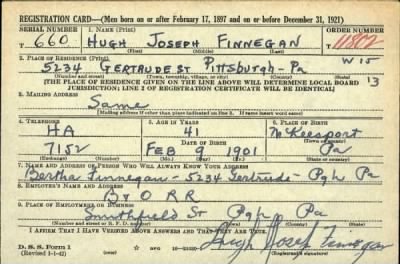 REGISTRATION CARD—(Men born on or after February 17, 1897 and on or before December 31, 1921)
SERIAL NUMBER 1. NAME (Print) ORDER NUMBER
T 660 HUGH JOSEPH FINNEGAN 11802
(First) (Middle) (Last)
2. PLACE OF RESIDENCE (Print) W 15
5234 GERTRUDE ST Pittsburgh - Pa
(Number and street) (Town, township, village, or city) (County) (State) 13
[THE PLACE OF RESIDENCE GIVEN ON THE LINE ABOVE WILL DETERMINE LOCAL BOARD
JURISDICTION; LINE 2 OF REGISTRATION CERTIFICATE WILL BE IDENTICAL]
3. MAILING ADDRESS
Same
[Mailing address if other than place indicated on line 2. If same insert word same]
4. TELEPHONE 5. AGE IN YEARS 6. PLACE OF BIRTH
HA 41 McKeesport
DATE OF BIRTH (Town or county)
7152 FEB 9 1901 Pa
(Exchange) (Number) (Mo.) (Day) (Yr.) (State or country)
7. NAME AND ADDRESS OF PERSON WHO WILL ALWAYS KNOW YOUR ADDRESS
Bertha Finnegan - 5234 Gertrude - Pgh Pa
8. EMPLOYER'S NAME AND ADDRESS
B & O RR
9. PLACE OF EMPLOYMENT OR BUSINESS
Smithfield St Pgh Pa
(Number and street or R. F. D. number) (Town) (County) (State)
I AFFIRM THAT I HAVE VERIFIED ABOVE ANSWERS AND THAT THEY ARE TRUE.
Hugh Joseph Finnegan
D. S. S. Form 1
(Revised 1-1-42) (over) (Registrant's signature)